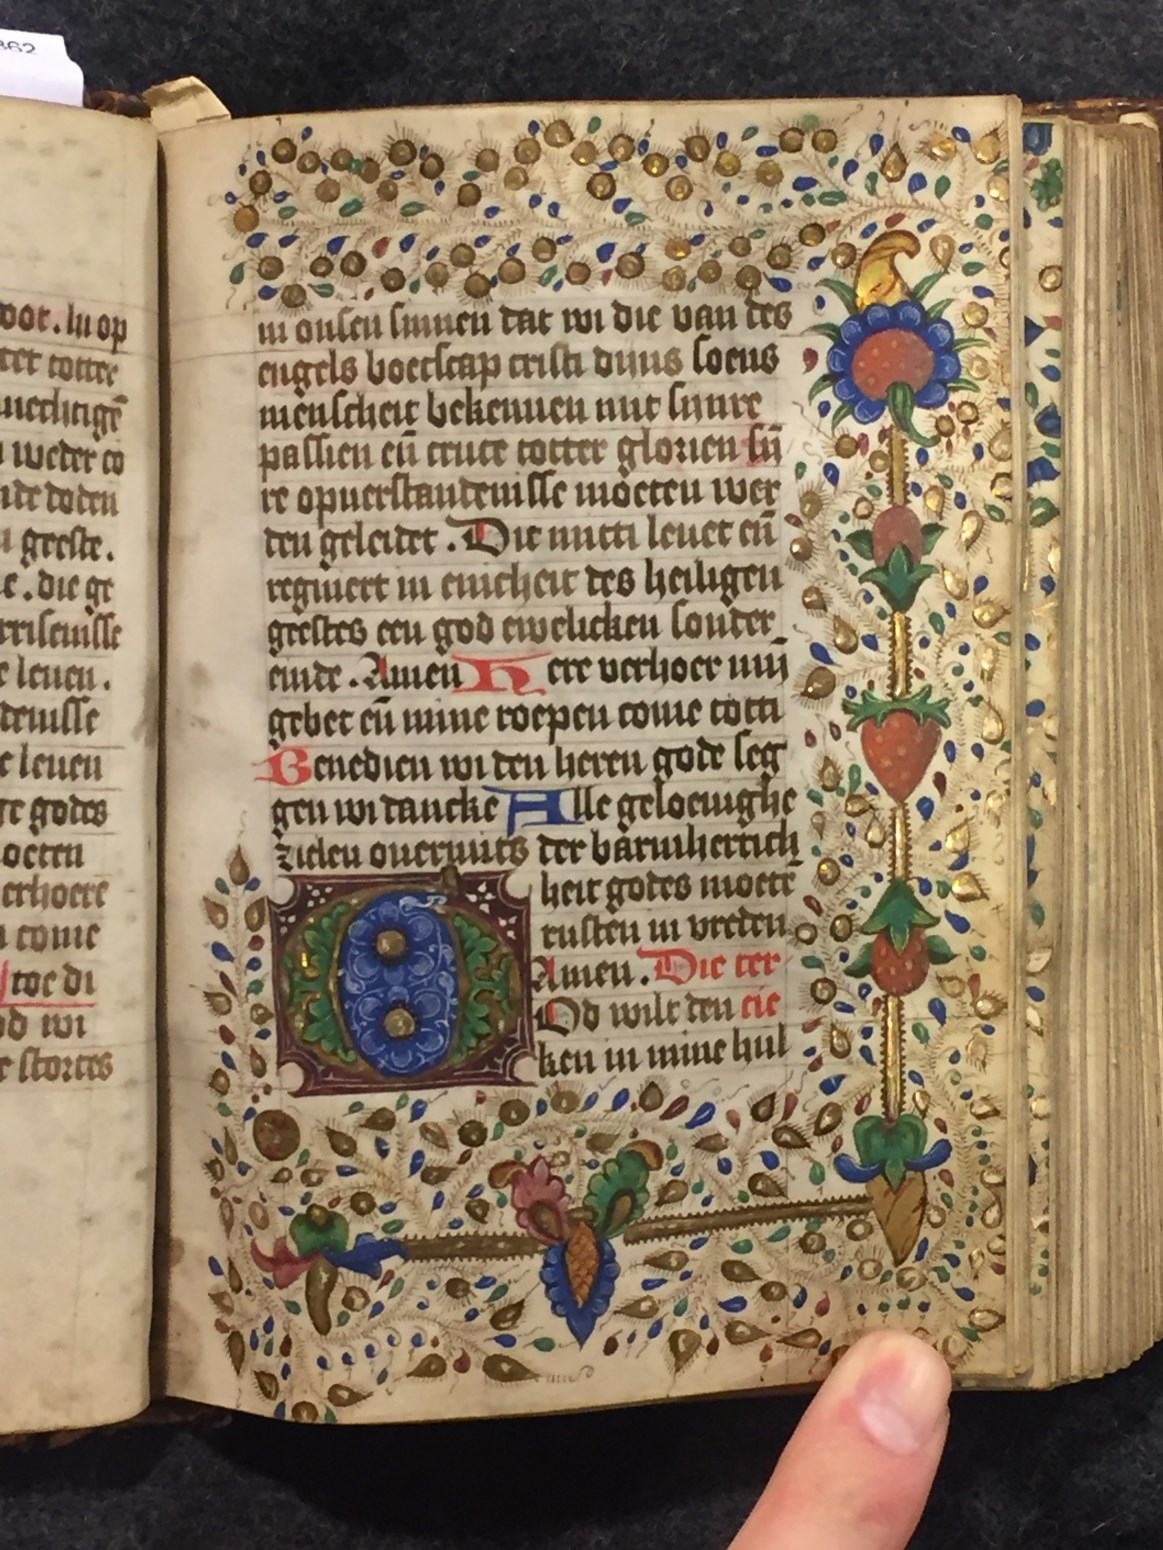 362
voor. In op
tet totter
mechtigē
weder to
nde doden
geeste.
e. die ge
rrisenisse
e leuen.
denisse
e leuen
ge godes
oeten
erhoere
come
toe di
od wi
e stortes
in onsen sinnen dat wi die van des
engels boetscap cristi dijns soens
menscheit bekennen mit sijnre
passien eñ cruce totter glorien sij̄
re opuerstandenisse moeten wer
den geleidet. Die mitti leuet eñ
regniert in enicheit des heiligen
geestes een god ewelicken sonder
einde. Amen Here verhoer mij̄
gebet eñ mine roepen come totti
Benedien wi den heren gode seg
gen wi dancke Alle geloeuighe
zielen ouermits der barmhertich
heit godes moete
rusten in vreden
Amen. Die ter
God wilt den cie
ken in mine hul